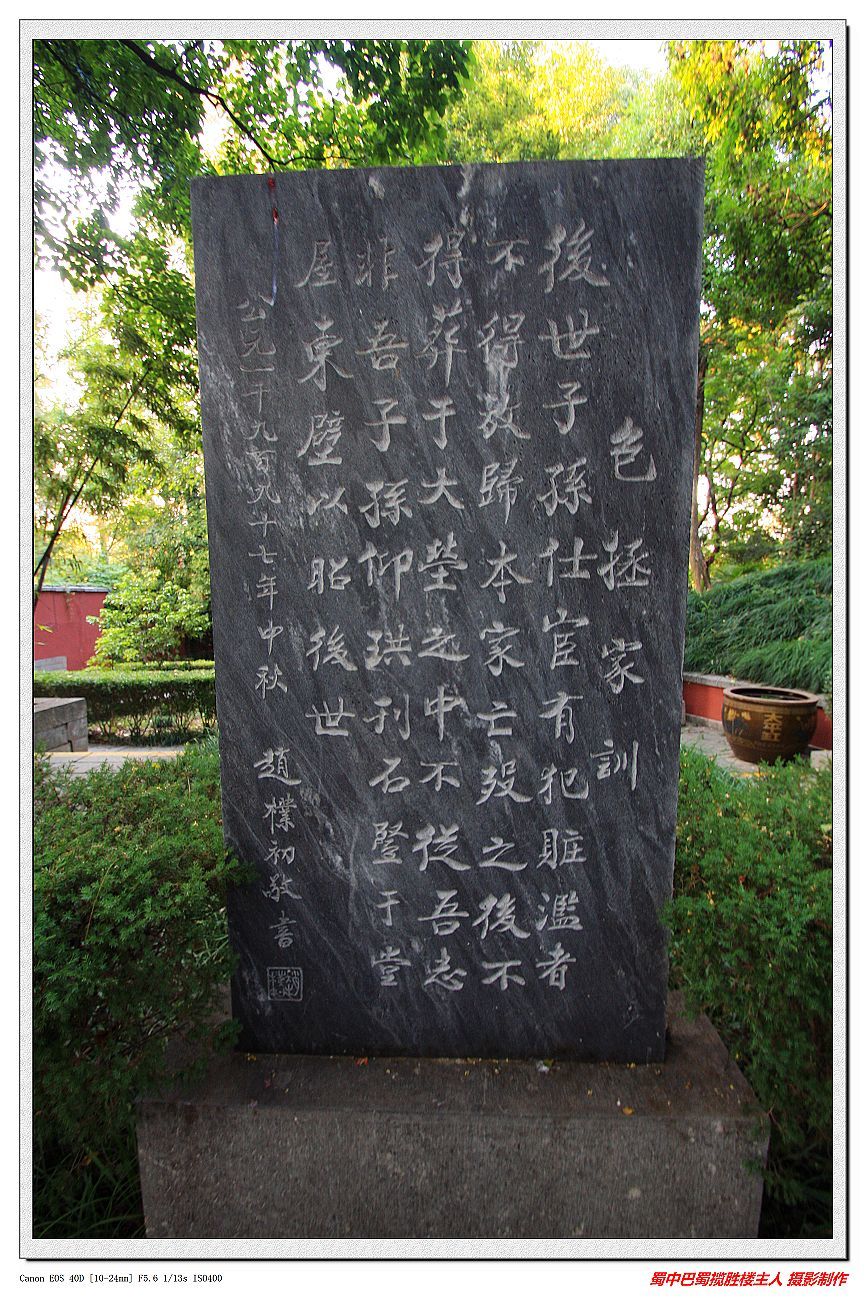 包拯家訓
後世子孫仕宦有犯賍濫者
不得放歸本家亡殁之後不
得葬于大塋之中不從吾志
非吾子孫仰珙刊石竪于堂
屋東壁以昭後世
公元一千九百九十七年中秋 趙樸初敬書
Canon EOS 40D [10-24mm] F5.6 1/13s ISO400
蜀中巴蜀揽胜楼主人 摄影制作